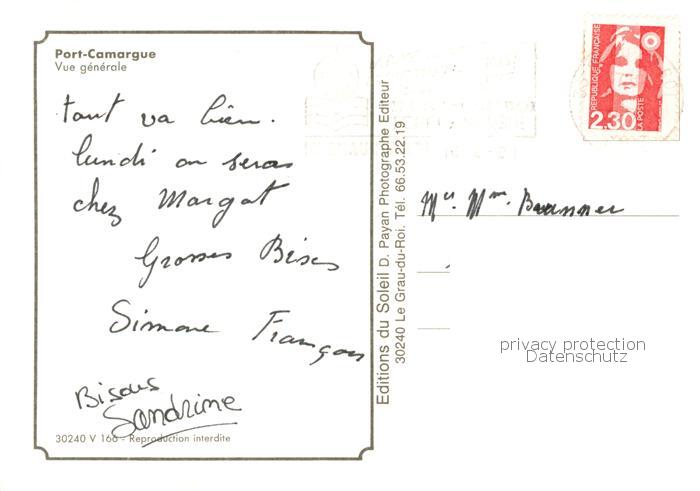 Port-Camargue
Vue générale
tout va bien.
lundi on seras
chez Margat
Grosses Bises
Simone François
Bisous
Sandrine
30240 V 166 - Reproduction interdite
Editions du Soleil D. Payan Photographe Editeur
30240 Le Grau-du-Roi. Tél. 66.53.22.19
REPUBLIQUE FRANÇAISE
2,30
LA POSTE
Mr. Mme. Brunner
privacy protection
Datenschutz